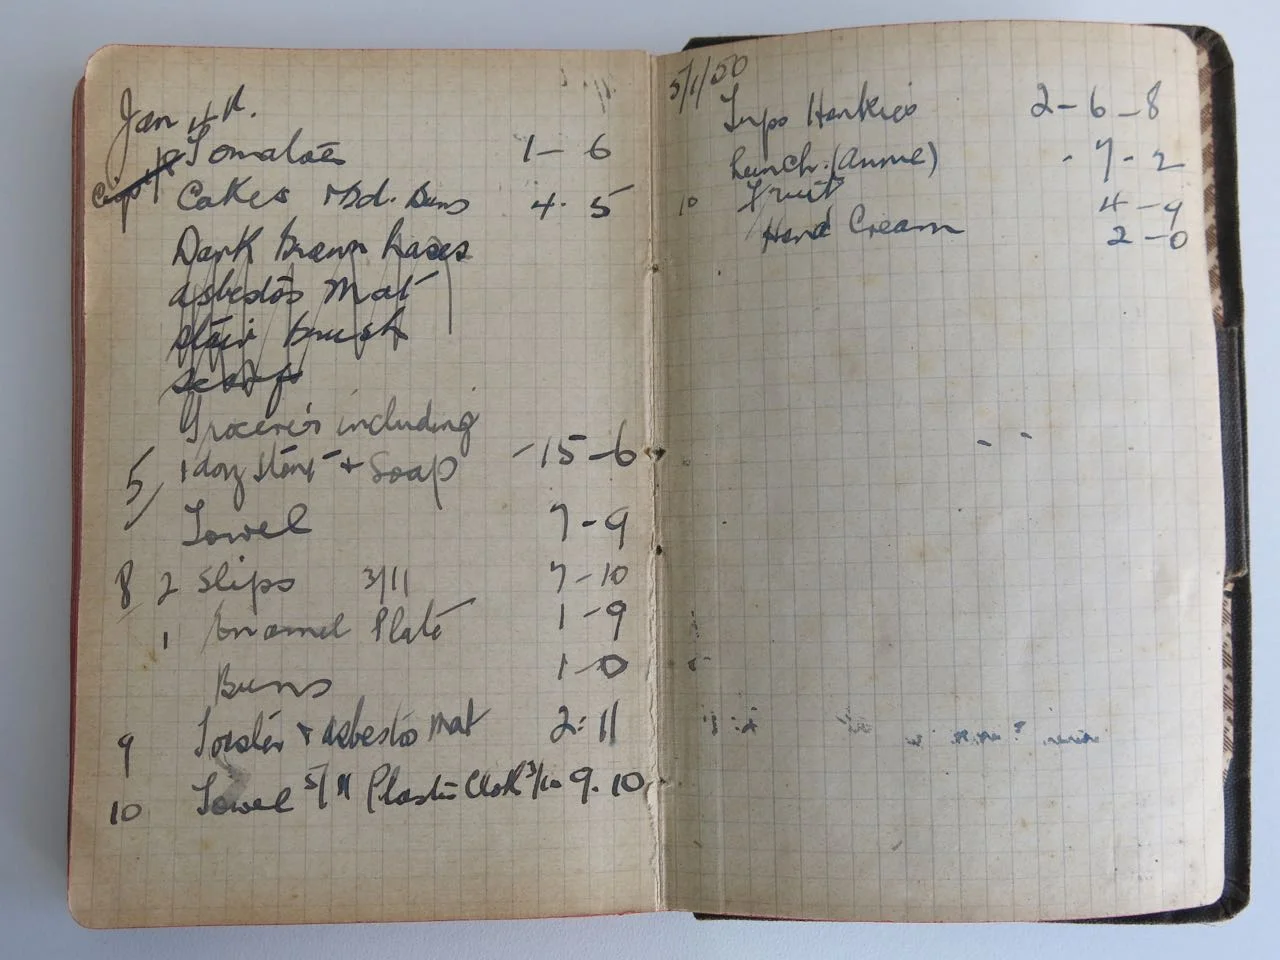 Jan 4th.
Tomatoes 1-6
Cakes Md. Buns 4. 5
Dark Brown
asbestos mat
stair brush
Groceries including
5/ 1 doz + Soap -15-6
Towel 7-9
8 2 Slips 3/11 7-10
1 Enamel Plate 1-9
Buns 1-0
9 Toaster + asbestos mat 2:11
10 Towel 5/11 Plastic Cloth 3/11 9.10
5/1/50
Hankies 2-6-8
Lunch. (Annie) - 7-2
10 Fruit 4-9
Hand Cream 2-0